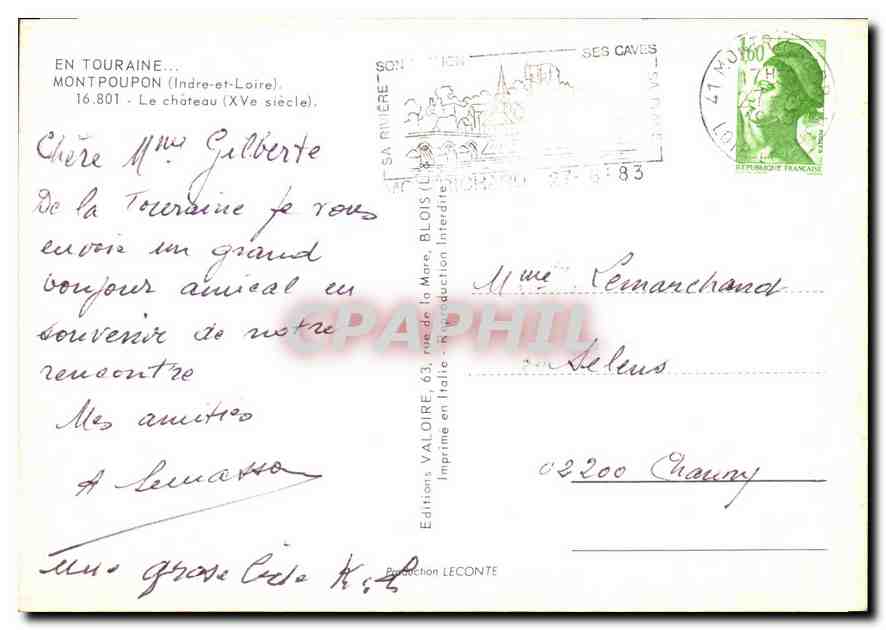 EN TOURAINE...
MONTPOUPON (Indre-et-Loire).
16.801 - Le château (XVe siècle).
Chère Mme Gilberte
De la Touraine je vous
envoie un grand
bonjour amical en
souvenir de notre
rencontre
Mes amitiés
A
une grose
Editions VALOIRE, 63, rue de la Mare, BLOIS
Imprimé en Italie - Reproduction Interdite
Production LECONTE
SA RIVIÈRE
SON
SES CAVES
27-8-83
41
17H
1,60
REPUBLIQUE FRANÇAISE
Mme Lemarchand
Selens
02200 Chauny
CPAPHIL